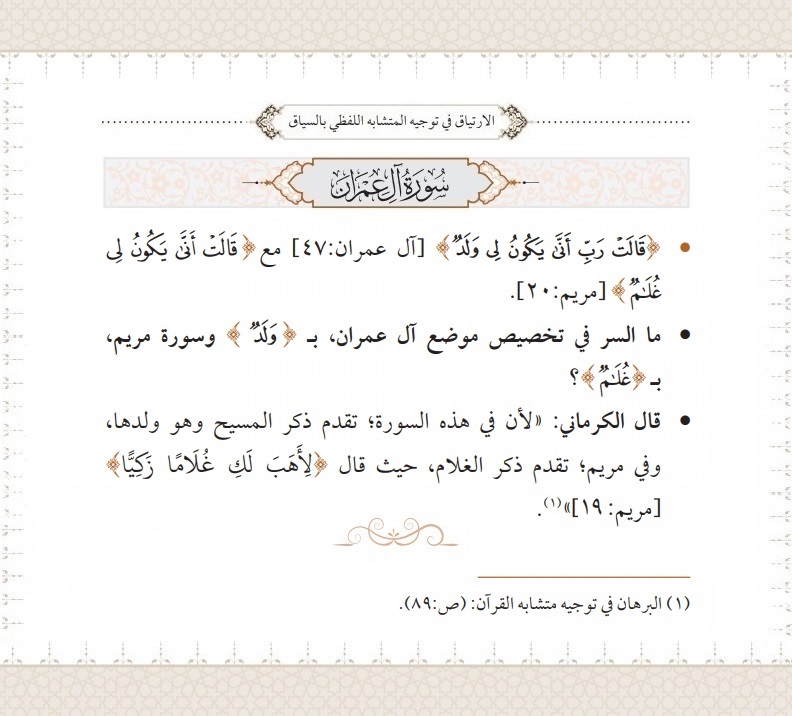 الارتياق في توجيه المتشابه اللفظي بالسياق
سُورَةُ آلِ عِمْرَان
• ﴿قَالَتْ رَبِّ أَنَّىٰ يَكُونُ لِى وَلَدٌ﴾ [آل عمران:٤٧] مع ﴿قَالَتْ أَنَّىٰ يَكُونُ لِى
غُلَـٰمٌ﴾ [مريم:٢٠].
• ما السر في تخصيص موضع آل عمران، بـ ﴿وَلَدٌ﴾ وسورة مريم،
بـ ﴿غُلَـٰمٌ﴾؟
• قال الكرماني: «لأن في هذه السورة؛ تقدم ذكر المسيح وهو ولدها،
وفي مريم؛ تقدم ذكر الغلام، حيث قال ﴿لِأَهَبَ لَكِ غُلَامًا زَكِيًّا﴾
[مريم: ١٩]»(١).
(١) البرهان في توجيه متشابه القرآن: (ص:٨٩).